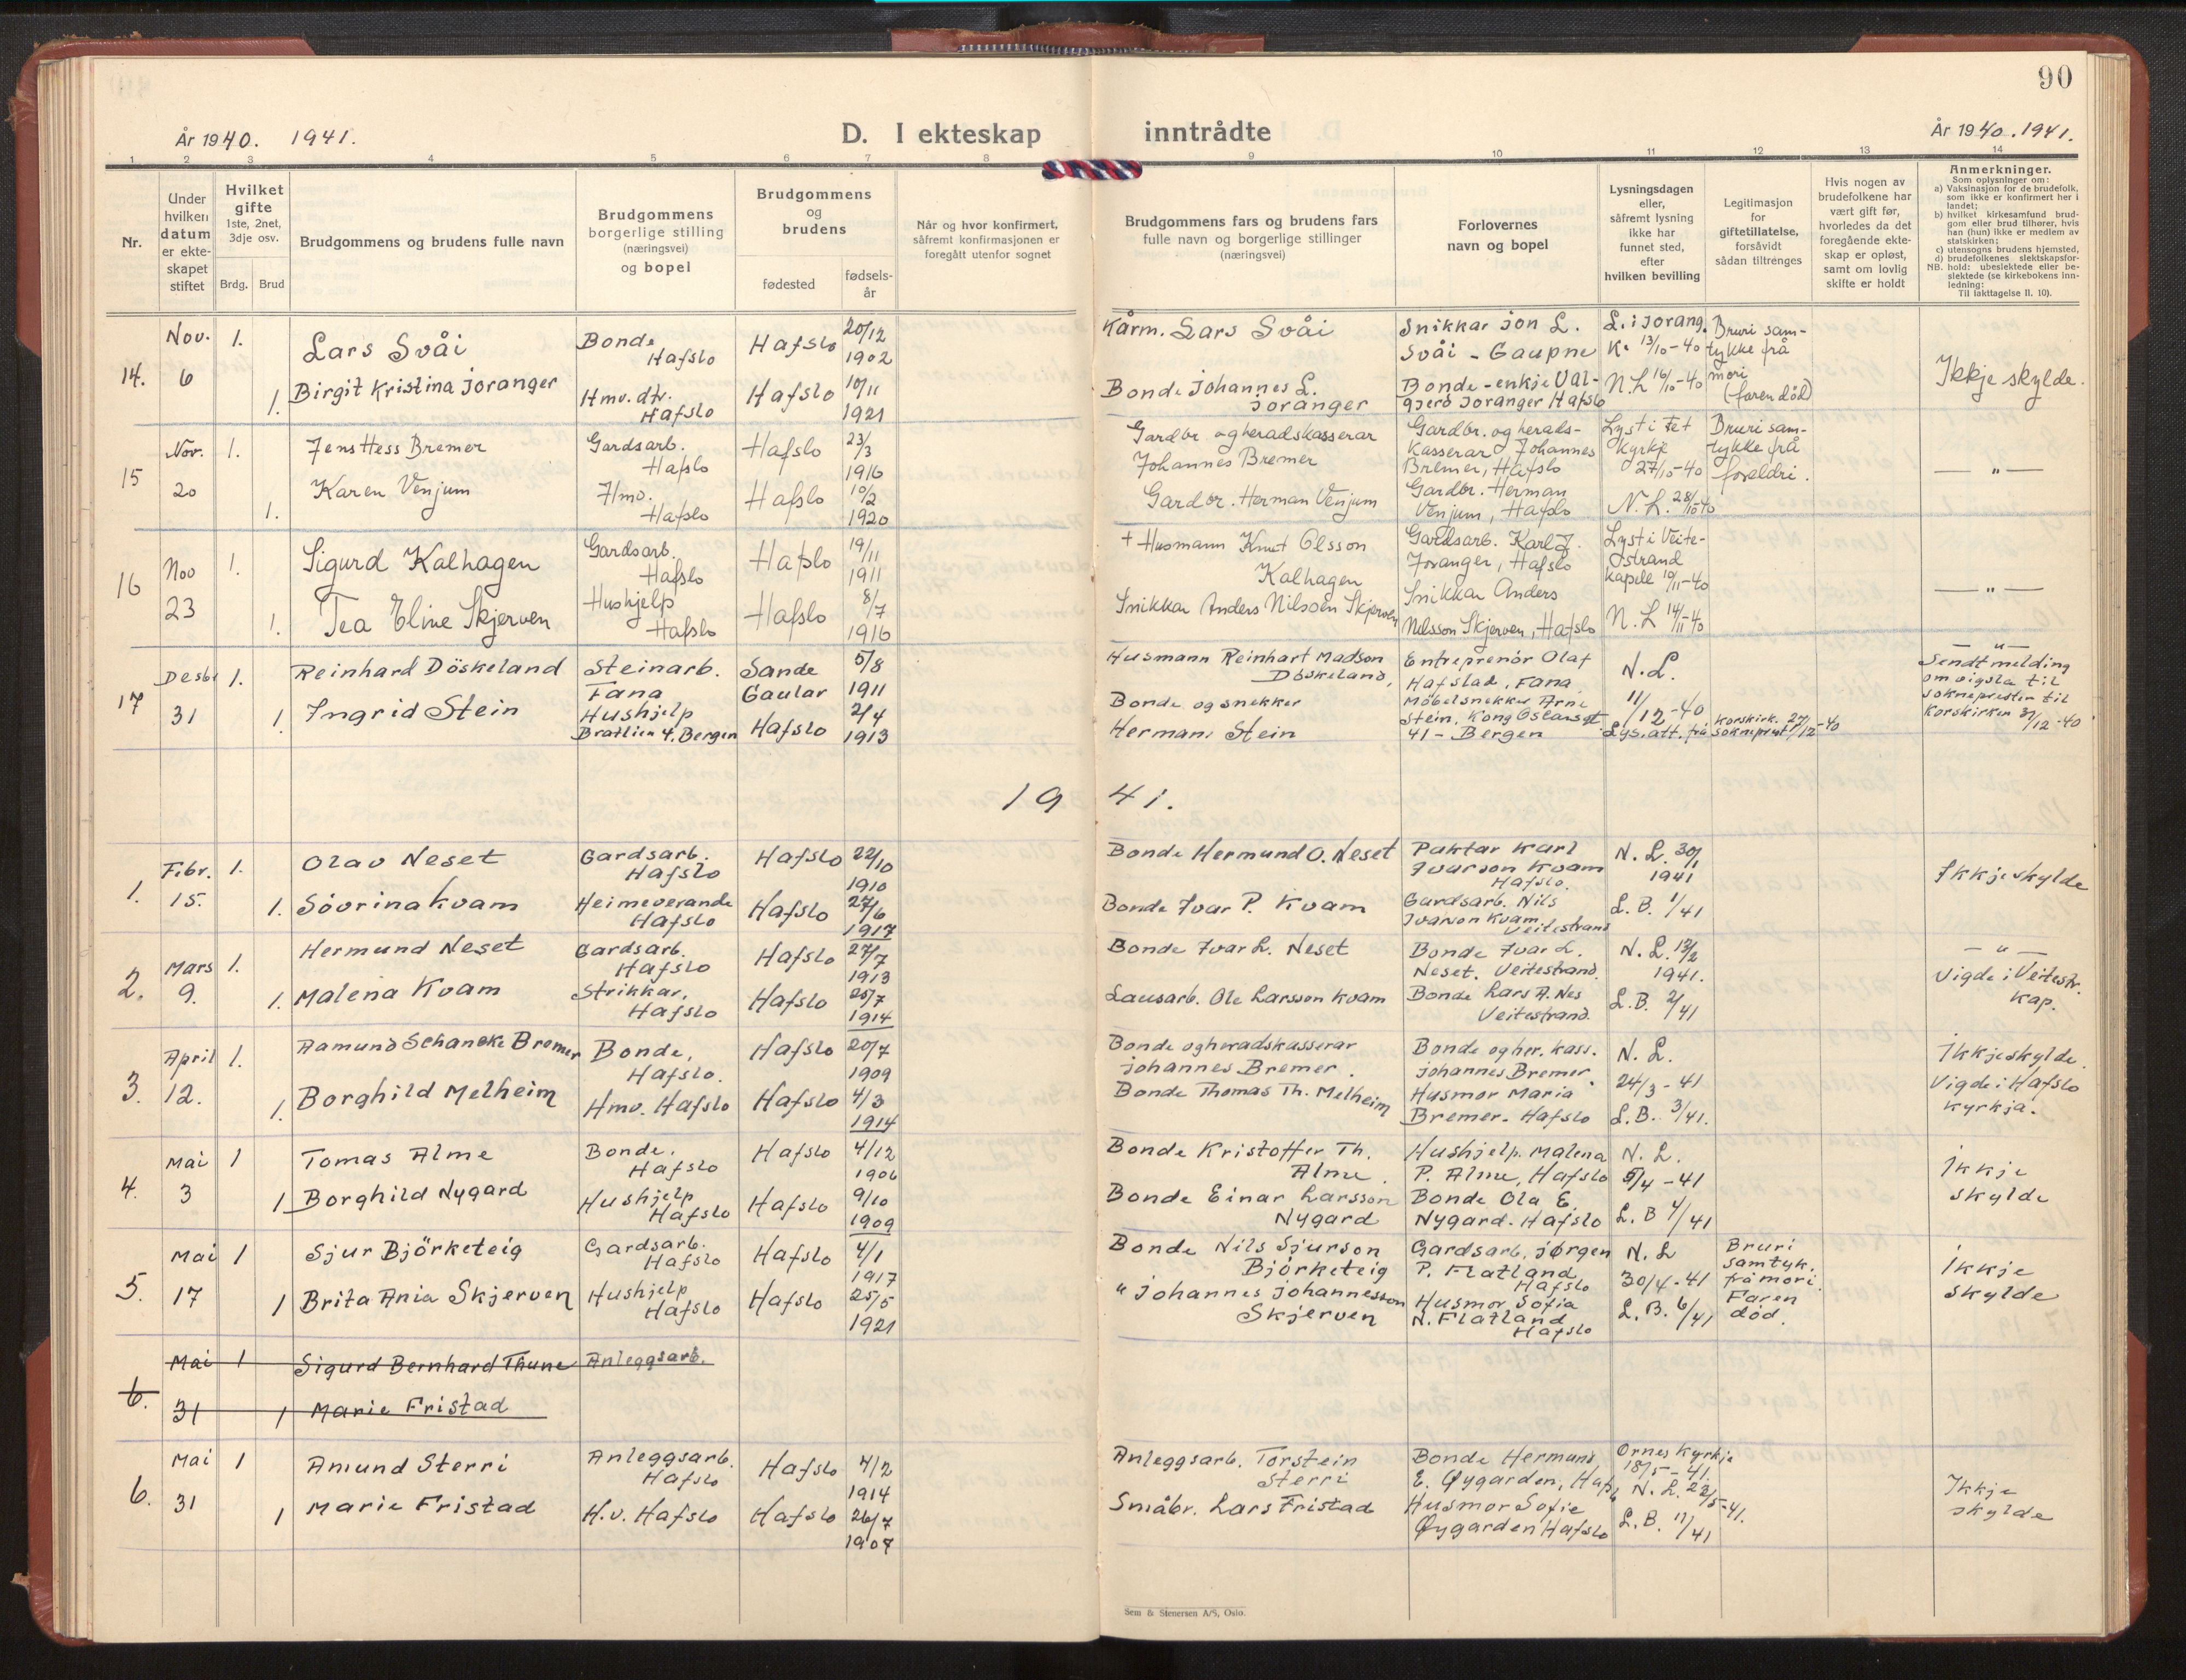 90
År 1940. 1941.
D. I ekteskap inntrådte
År 1940. 1941.
1 2 3 4 5 6 7 8 9 10 11 12 13 14
Nr.
Under
hvilken
datum
er ekte-
skapet
stiftet
Hvilket
gifte
1ste, 2net,
3dje osv.
Brdg. Brud
Brudgommens og brudens fulle navn
Brudgommens
borgerlige stilling
(næringsvei)
og bopel
Brudgommens
og
brudens
fødested
fødsels-
år
Når og hvor konfirmert,
såfremt konfirmasjonen er
foregått utenfor sognet
Brudgommens fars og brudens fars
fulle navn og borgerlige stillinger
(næringsvei)
Forlovernes
navn og bopel
Lysningsdagen
eller,
såfremt lysning
ikke har
funnet sted,
efter
hvilken bevilling
Legitimasjon
for
giftetillatelse,
forsåvidt
sådan tiltrenges
Hvis nogen av
brudefolkene har
vært gift før,
hvorledes da det
foregående ekte-
skap er opløst,
samt om lovlig
skifte er holdt
Anmerkninger.
Som oplysninger om:
a) Vaksinasjon for de brudefolk,
som ikke er konfirmert her i
landet;
b) hvilket kirkesamfund brud-
gom eller brud tilhører, hvis
han (hun) ikke er medlem av
statskirken;
c) utensogns brudens hjemsted,
d) brudefolkenes slektskapsfor-
NB. hold: ubeslektede eller be-
slektede (se kirkebokens inn-
ledning:
Til iakttagelse II. 10).
14.
Nov.
6
1.
Lars Svåi
Bonde
Hafslo
Hafslo
20/12
1902
Kårm. Lars Svåi
Snikkar Jon L.
Svåi - Gaupne
L. i Jorang.
K. 13/10-40
Bruri sam-
tykke frå
mori
(faren död)
Ikkje skylde.
1.
Birgit Kristina Joranger
Hmv. dtr.
Hafslo
Hafslo
10/11
1921
Bonde Johannes L.
Joranger
Bonde-enkje Val-
gjerd Joranger Hafslo
N.L 16/10-40
15
Nov.
20
1.
Jens Hess Bremer
Gardsarb.
Hafslo
Hafslo
23/3
1916
Gardbr og heradskasserar
Johannes Bremer
Gardbr. og herads-
kasserar Johannes
Bremer, Hafslo
Lyst i Fet
Kyrkje
27/10-40
Bruri sam-
tykke frå
foreldri.
— " —
1.
Karen Venjum
Hmv.
Hafslo
Hafslo
10/2
1920
Gardbr. Herman Venjum
Gardbr. Herman
Venjum, Hafslo
N.L. 28/10-40
16
Nov
23
1.
Sigurd Kalhagen
Gardsarb.
Hafslo
Hafslo
19/11
1911
+ Husmann Knut Olsson
Kalhagen
Gardsarb. Karl J.
Joranger, Hafslo
Lyst i Veite-
strand
kapele 10/11-40
— " —
1.
Tea Eline Skjerven
Hushjelp
Hafslo
Hafslo
8/7
1916
Snikkar Anders Nilsson Skjerven
Snikkar Anders
Nilsson Skjerven, Hafslo
N.L 14/11-40
17
Desbr
31
1.
Reinhard Döskeland
Steinarb.
Fana
Sande
Gaular
5/8
1911
Husmann Reinhart Madson
Döskeland,
Entreprenör Olaf
Hafstad, Fana
N.L.
11/12-40
— " —
Sendt melding
om vigsla til
sokneprestin til
Korskirken 31/12-40
1.
Ingrid Stein
Hushjelp
Bratlien 4, Bergen
Hafslo
2/4
1913
Bonde og snekker
Herman Stein
Möbelsnekker Arne
Stein, Kong Oscarsgt
41 - Bergen
Lys.att. frå
Korskirk.
sokneprest 27/12-40
1941.
1.
Febr.
15.
1.
Olav Neset
Gardsarb.
Hafslo
Hafslo
22/10
1910
Bonde Hermund O. Neset
Paktar Karl
Ivarson Kvam
Hafslo.
N.L. 30/1
1941
Ikkje skylde
1.
Sövrina Kvam
Heimeverande
Hafslo
Hafslo
27/6
1917
Bonde Ivar P. Kvam
Gardsarb. Nils
Ivarson Kvam.
Veitestrand
L.B. 1/41
2.
Mars
9.
1.
Hermund Neset
Gardsarb.
Hafslo
Hafslo
27/7
1913
Bonde Ivar L. Neset
Bonde Ivar L.
Neset. Veitestrand.
N.L. 13/2
1941.
— " —
Vigde i Veitestr.
kap.
1.
Malena Kvam
Strikkar,
Hafslo
Hafslo
25/7
1914
Lausarb. Ole Larsson Kvam
Bonde Lars A. Nes
Veitestrand.
L.B. 2/41
3.
April
12.
1.
Aamund Schancke Bremer
Bonde,
Hafslo.
Hafslo
20/7
1909
Bonde og heradskasserar
Johannes Bremer.
Bonde og her. kass.
Johannes Bremer.
N.L.
24/3-41
Ikkje skylde.
Vigde i Hafslo
kyrkja.
1.
Borghild Melheim
Hmv. Hafslo
Hafslo
4/3
1914
Bonde Thomas Th. Melheim
Husmor Maria
Bremer. Hafslo
L.B. 3/41.
4.
Mai
3
1
Tomas Alme
Bonde.
Hafslo
Hafslo
4/12
1906
Bonde Kristoffer Th.
Alme.
Hushjelp. Malena
P. Alme, Hafslo
N.L.
5/4-41
Ikkje
skylde
1
Borghild Nygard
Hushjelp
Hafslo
Hafslo
9/10
1909
Bonde Einar Larsson
Nygard
Bonde Ola E.
Nygard. Hafslo
L.B 4/41
5.
Mai
17
1
Sjur Björketeig
Gardsarb.
Hafslo
Hafslo
4/1
1917
Bonde Nils Sjurson
Björketeig
Gardsarb. Jørgen
P. Flatland
Hafslo
N.L
30/4-41
Bruri
samtyk.
frå mori.
Faren
död.
Ikkje
skylde
1
Brita Ania Skjerven
Hushjelp
Hafslo
Hafslo
25/5
1921
" Johannes Johannesson
Skjerven
Husmor Sofia
N. Flatland
Hafslo
L.B. 6/41
6.
Mai
31
1
Sigurd Bernhard Thune
Anleggsarb.
1
Marie Fristad
6.
Mai
31
1
Amund Sterri
Anleggsarb.
Hafslo
Hafslo
4/2
1914
Anleggsarb. Torstein
Sterri
Bonde Hermund
E. Øygarden, Hafslo
Ornes Kyrkje
18/5-41.
N.L. 23/5-41.
Ikkje
skylde
1
Marie Fristad
H.v. Hafslo
Hafslo
26/7
1907
Småbr. Lars Fristad
Husmor Sofie
Øygarden Hafslo
L.B. 11/41
Sem & Stenersen A/S, Oslo.